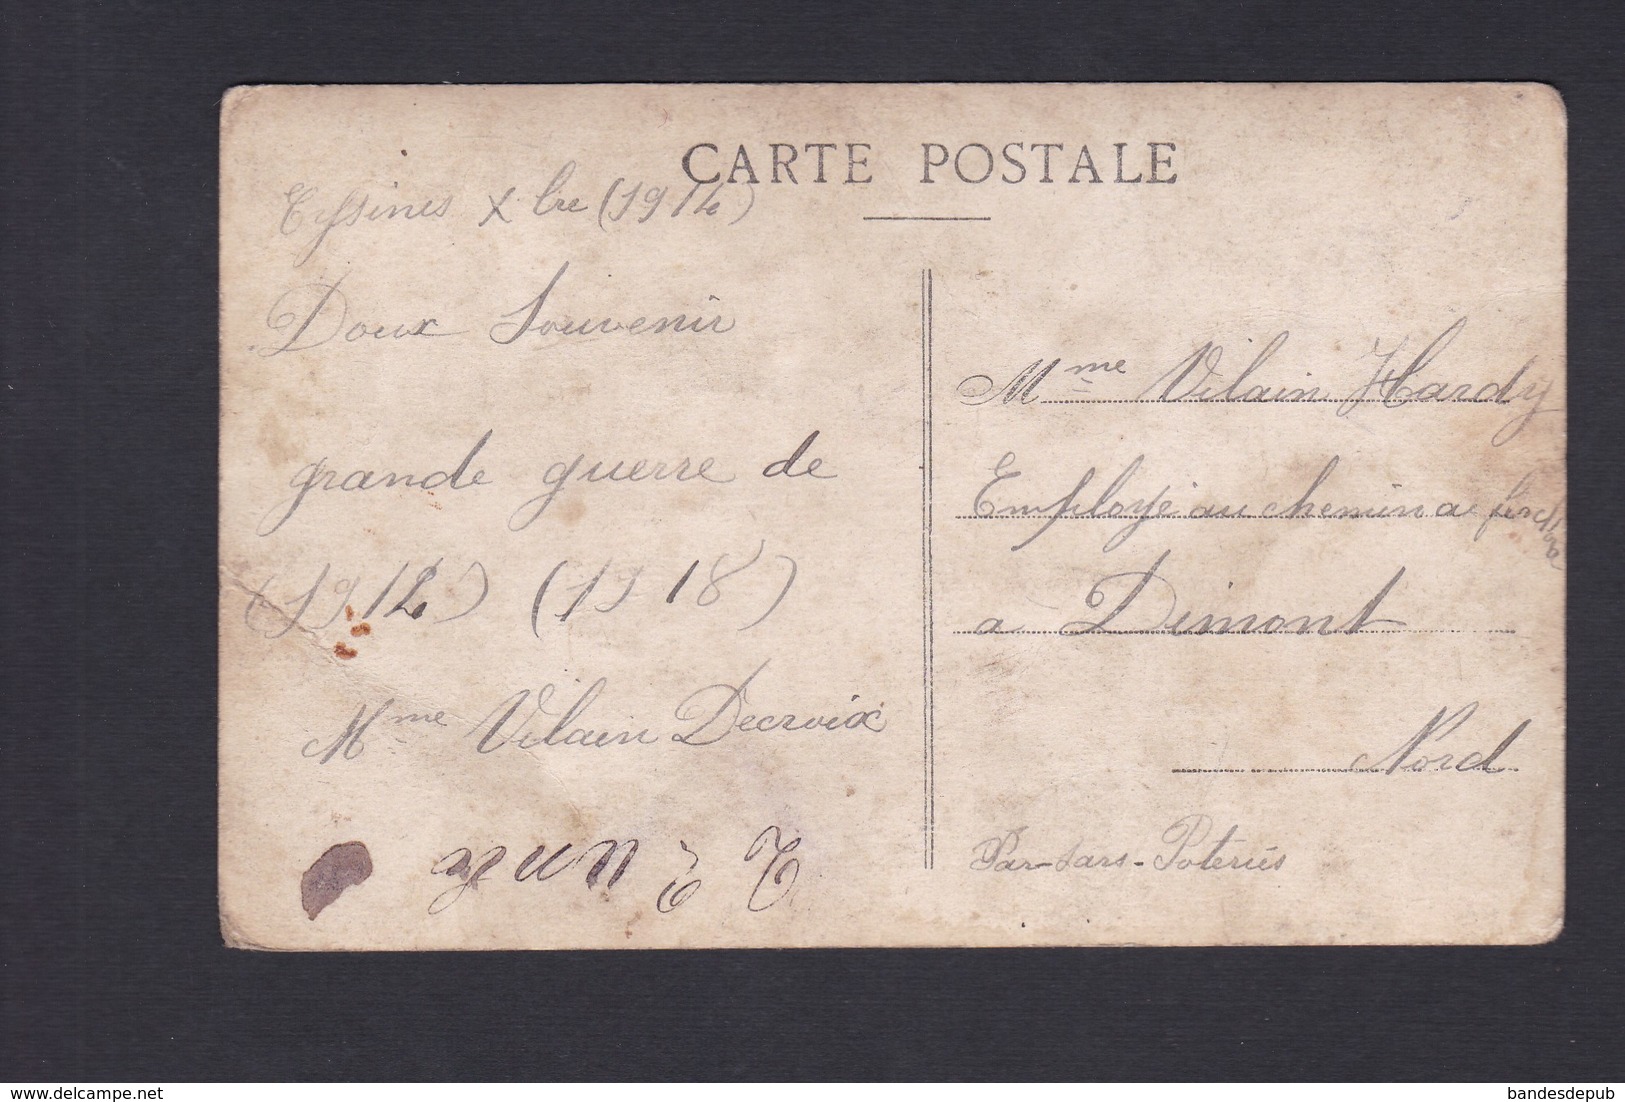 CARTE POSTALE
X bre (1914)
Doux Souvenir
grande guerre de
(1914) (1918)
Mme Vilain Decroix
Mme Vilain Hardy
Employé au chemin de fer
a Dimont
Nord
Par-Sars-Poteries
delcampe.net
bandesdepub